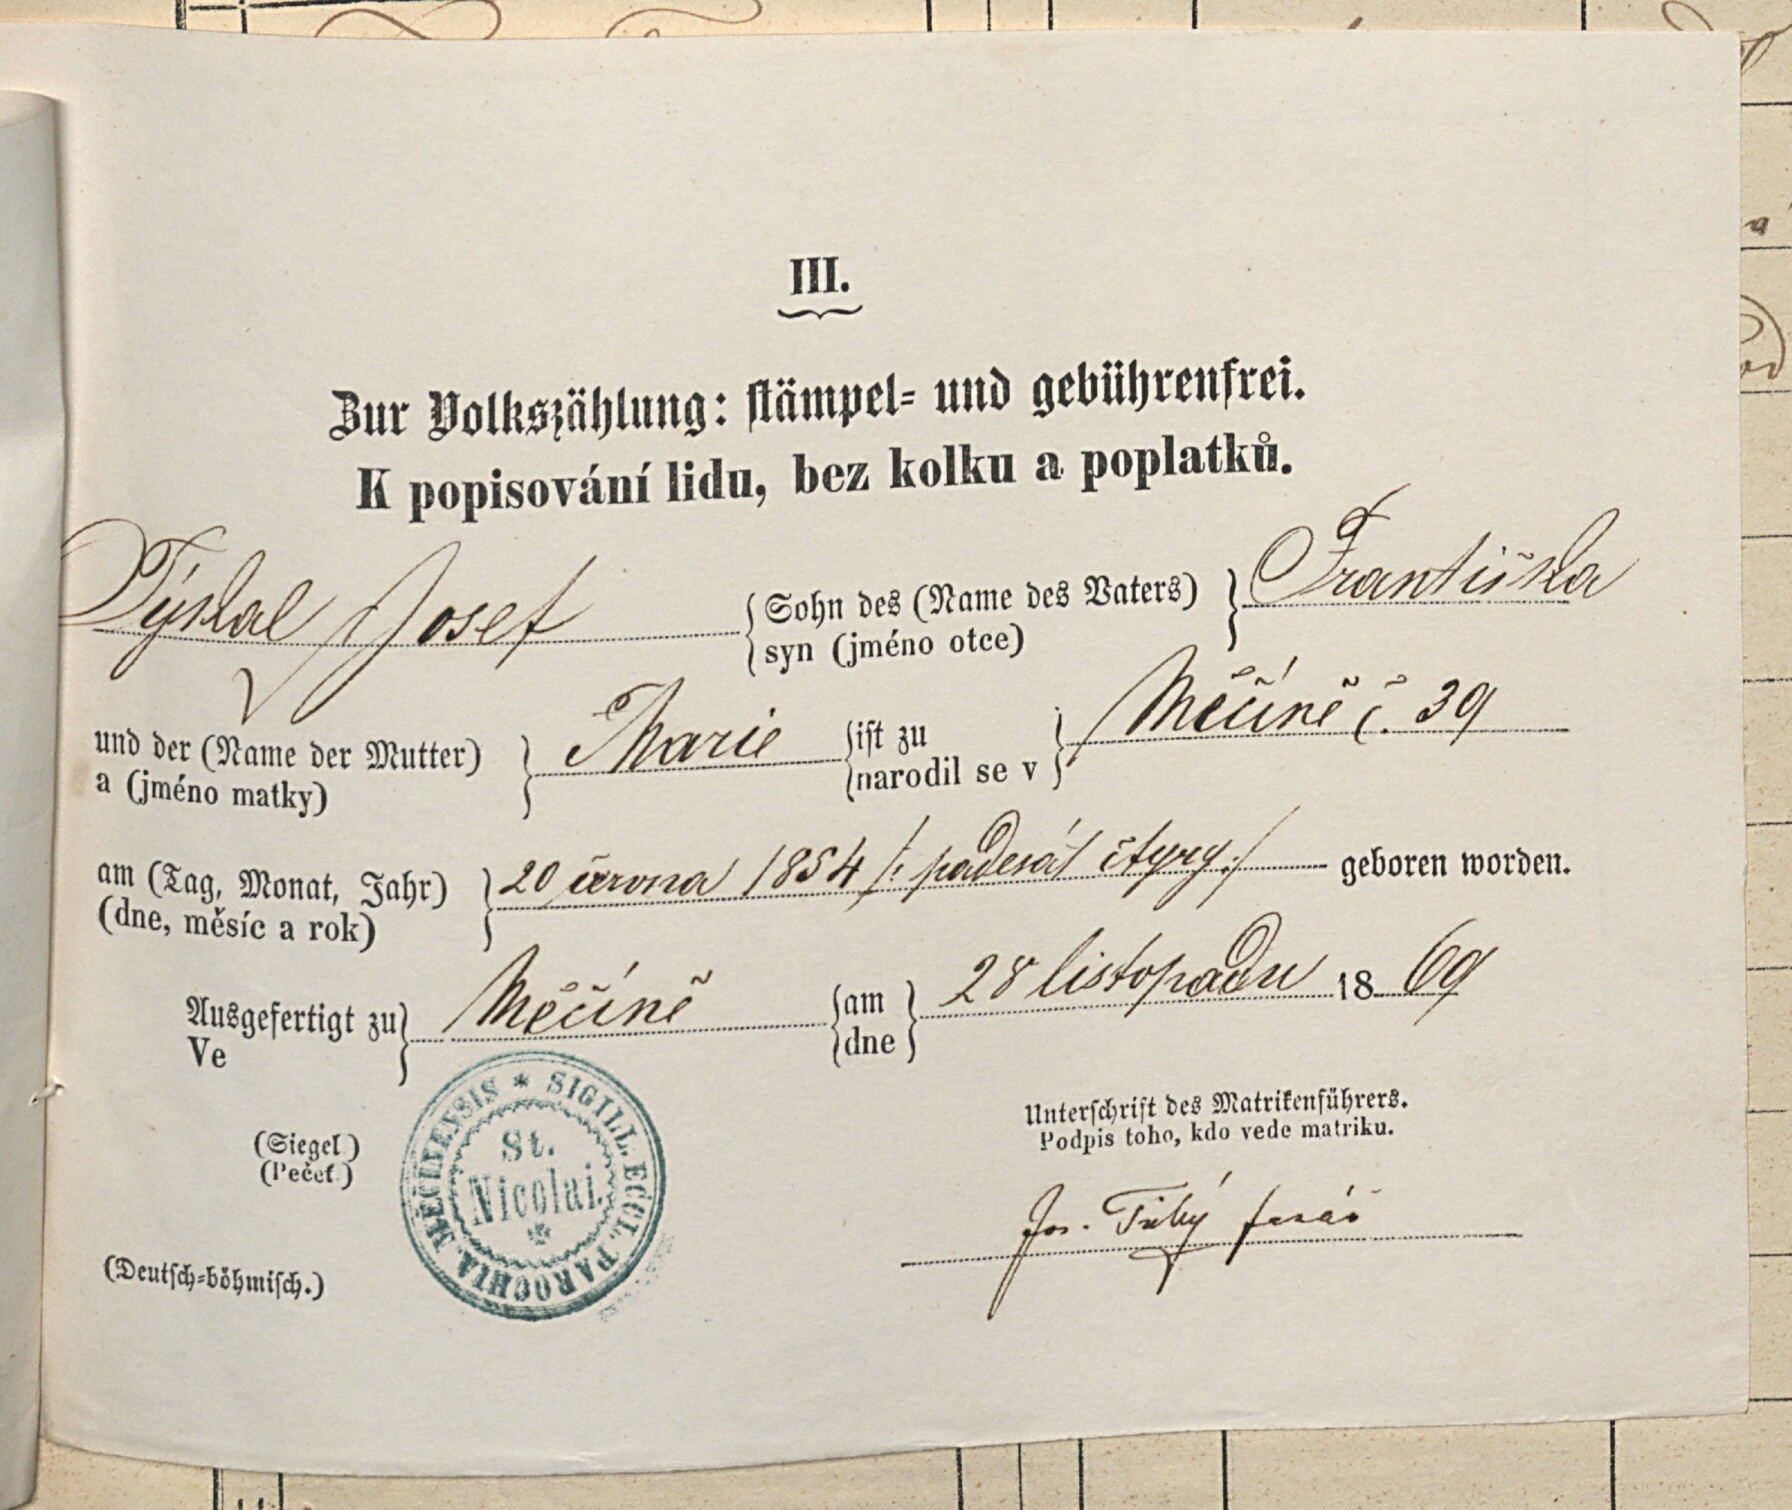 III.
Zur Volkszählung: stämpel- und gebührenfrei.
K popisování lidu, bez kolku a poplatků.
Týskal Josef { Sohn des (Name des Vaters) } Františka
syn (jméno otce)
und der (Name der Mutter) } Marie { ist zu } Měčíně č. 39
a (jméno matky) narodil se v
am (Tag, Monat, Jahr) } 20 června 1854 /: padesát čtyry :/ geboren worden.
(dne, měsíc a rok)
Ausgefertigt zu } Měčíně { am } 28 listopadu 1869
Ve dne
Unterschrift des Matrikenführers.
Podpis toho, kdo vede matriku.
(Siegel)
(Pečeť)
SIGILL. ECCL. PAROCHIA MĚČINENSIS *
St.
Nicolai.
Jos. Tichý farář
(Deutsch-böhmisch.)